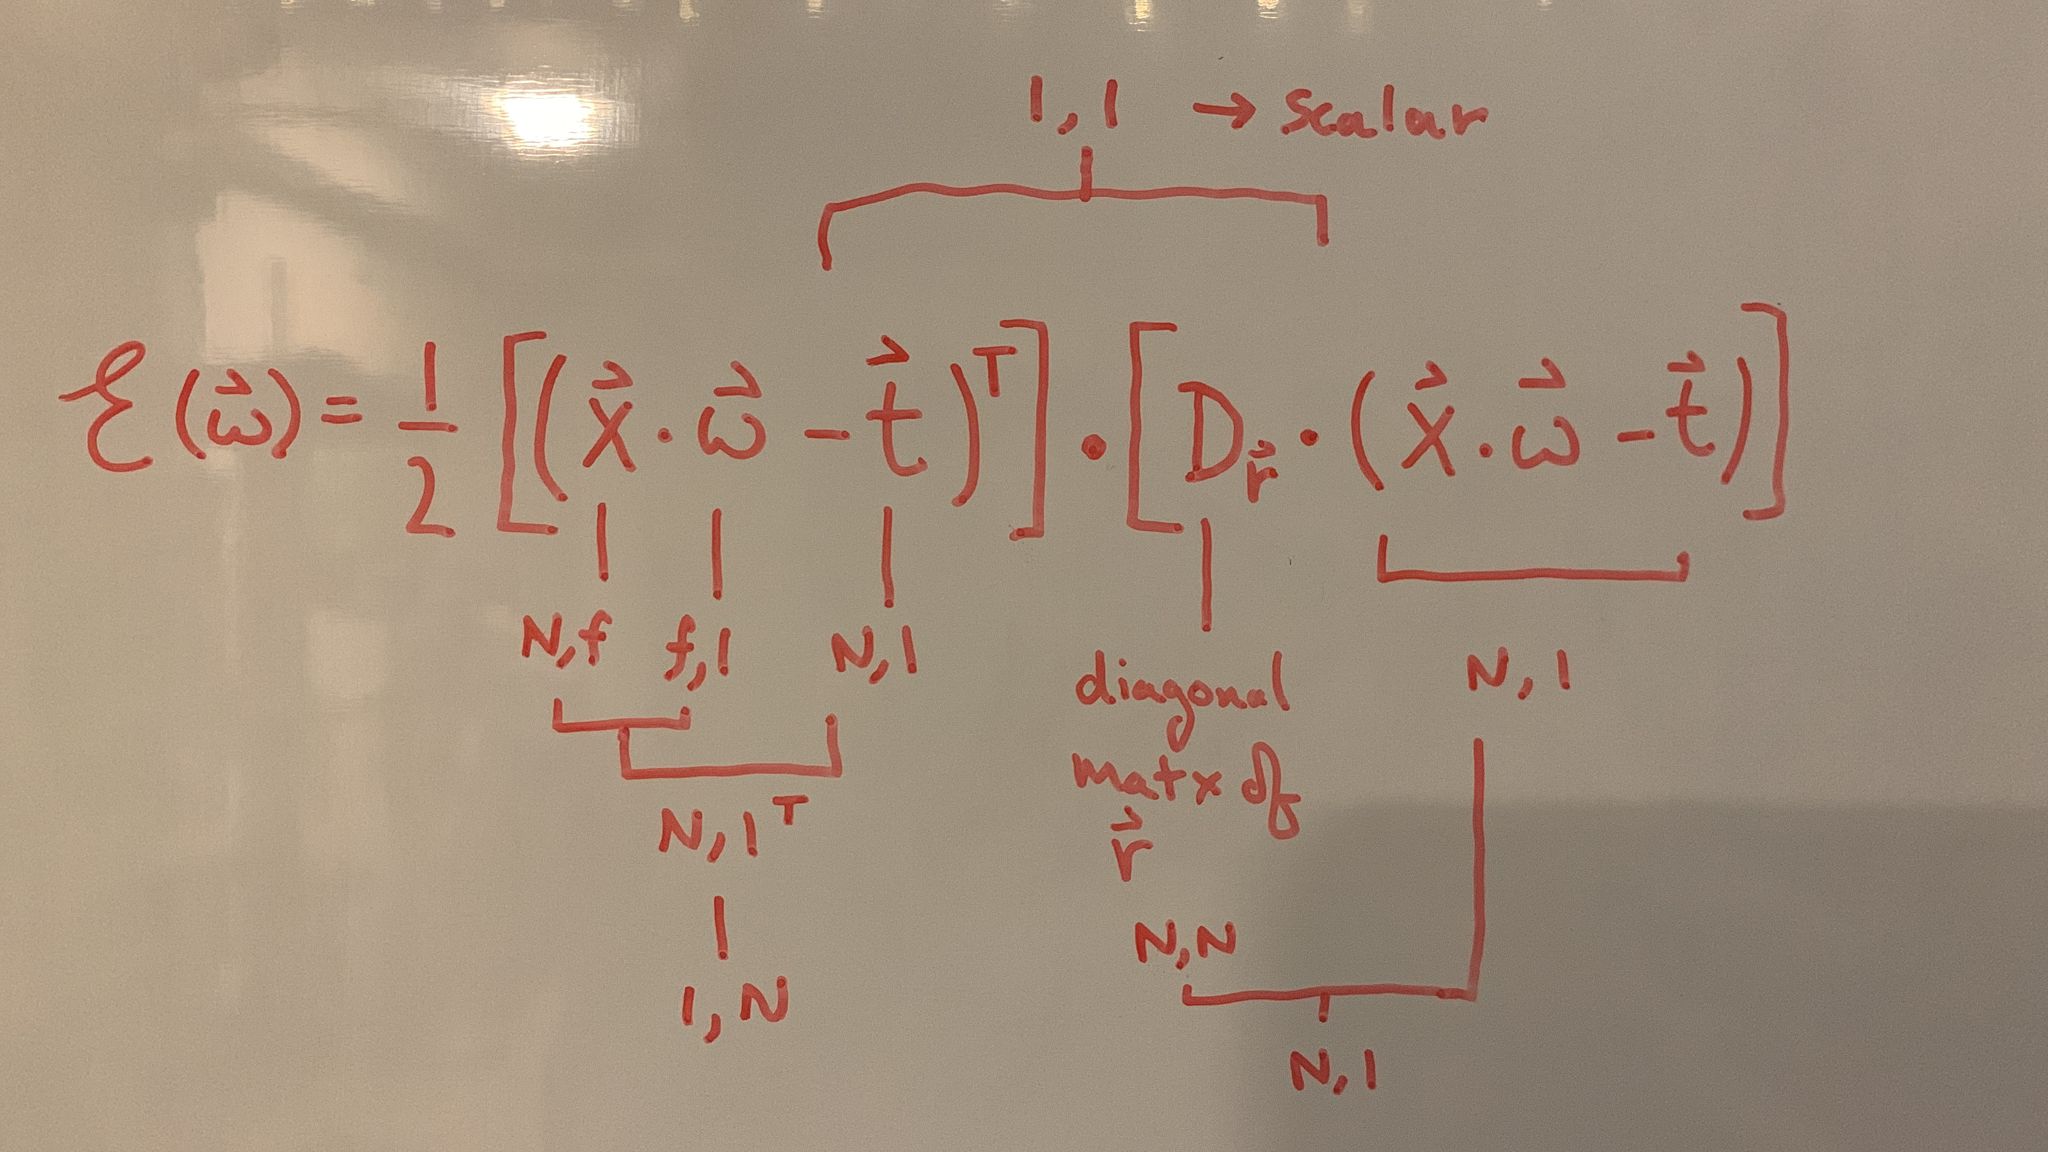 1,1 → Scalar
ℰ(ω⃗) = 1/2 [(x⃗ · ω⃗ - t⃗)ᵀ] · [D_r⃗ · (x⃗ · ω⃗ - t⃗)]
N,f f,1 N,1
N,1ᵀ
1,N
diagonal
matx of
r⃗
N,N
N,1
N,1